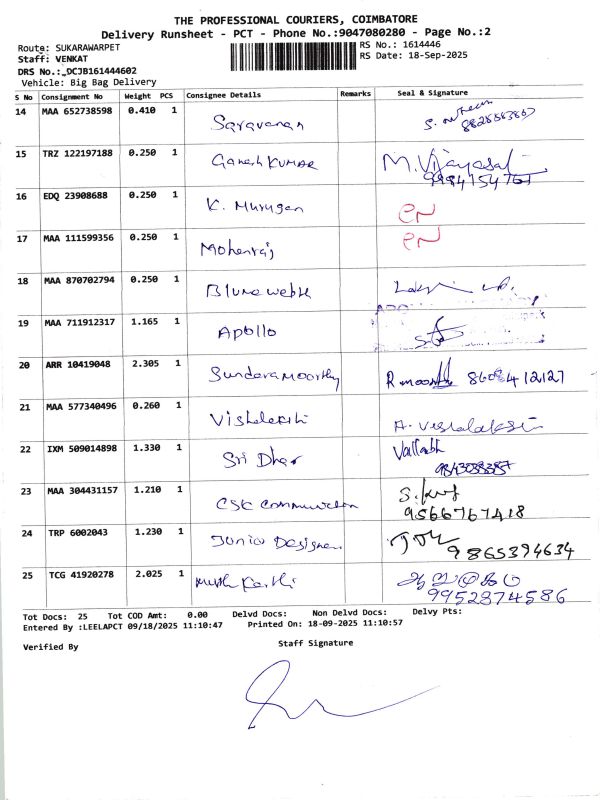 THE PROFESSIONAL COURIERS, COIMBATORE
Delivery Runsheet - PCT - Phone No.:9047080280 - Page No.:2
Route: SUKARAWARPET
Staff: VENKAT
DRS No.:_DCJB161444602
Vehicle: Big Bag Delivery
RS No.: 1614446
RS Date: 18-Sep-2025
S No Consignment No Weight PCS Consignee Details Remarks Seal & Signature
14 MAA 652738598 0.410 1 Saravanan
15 TRZ 122197188 0.250 1 Ganesh KUMAR M. Vijayasal
16 EDQ 23908688 0.250 1 K. Murugan
17 MAA 111599356 0.250 1 Mohanraj
18 MAA 870702794 0.250 1
19 MAA 711912317 1.165 1 Apollo
20 ARR 10419048 2.305 1 Sundaramoorthy
21 MAA 577340496 0.260 1 Vishalakshi
22 IXM 509014898 1.330 1 Sri Dhar Vallabh
23 MAA 304431157 1.210 1 CSC Communication
9566767418
24 TRP 6002043 1.230 1 Junior Designer
9865394634
25 TCG 41920278 2.025 1
9952374586
Tot Docs: 25 Tot COD Amt: 0.00 Delvd Docs: Non Delvd Docs: Delvy Pts:
Entered By :LEELAPCT 09/18/2025 11:10:47 Printed On: 18-09-2025 11:10:57
Verified By Staff Signature